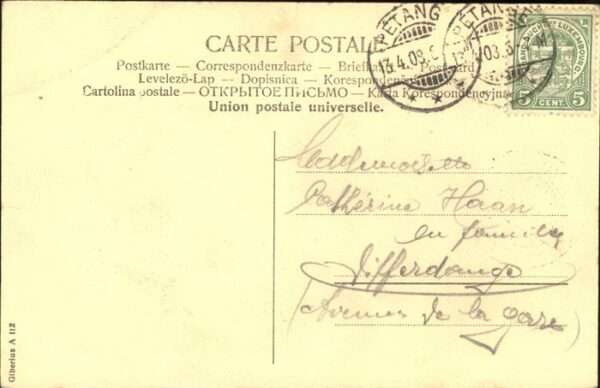 CARTE POSTALE
Postkarte — Correspondenzkarte — Briefka — Postcard
Levelező-Lap — Dopisnica — Korespondenční
Cartolina postale — ОТКРЫТОЕ ПИСЬМО — Karta Korespondencyjna
Union postale universelle.
PÉTANG
13.4.08
5 CENT. 5
Mademoiselle
Cathérine Haan
en famille
Differdange
(Avenue de la gare)
Giberius A 112